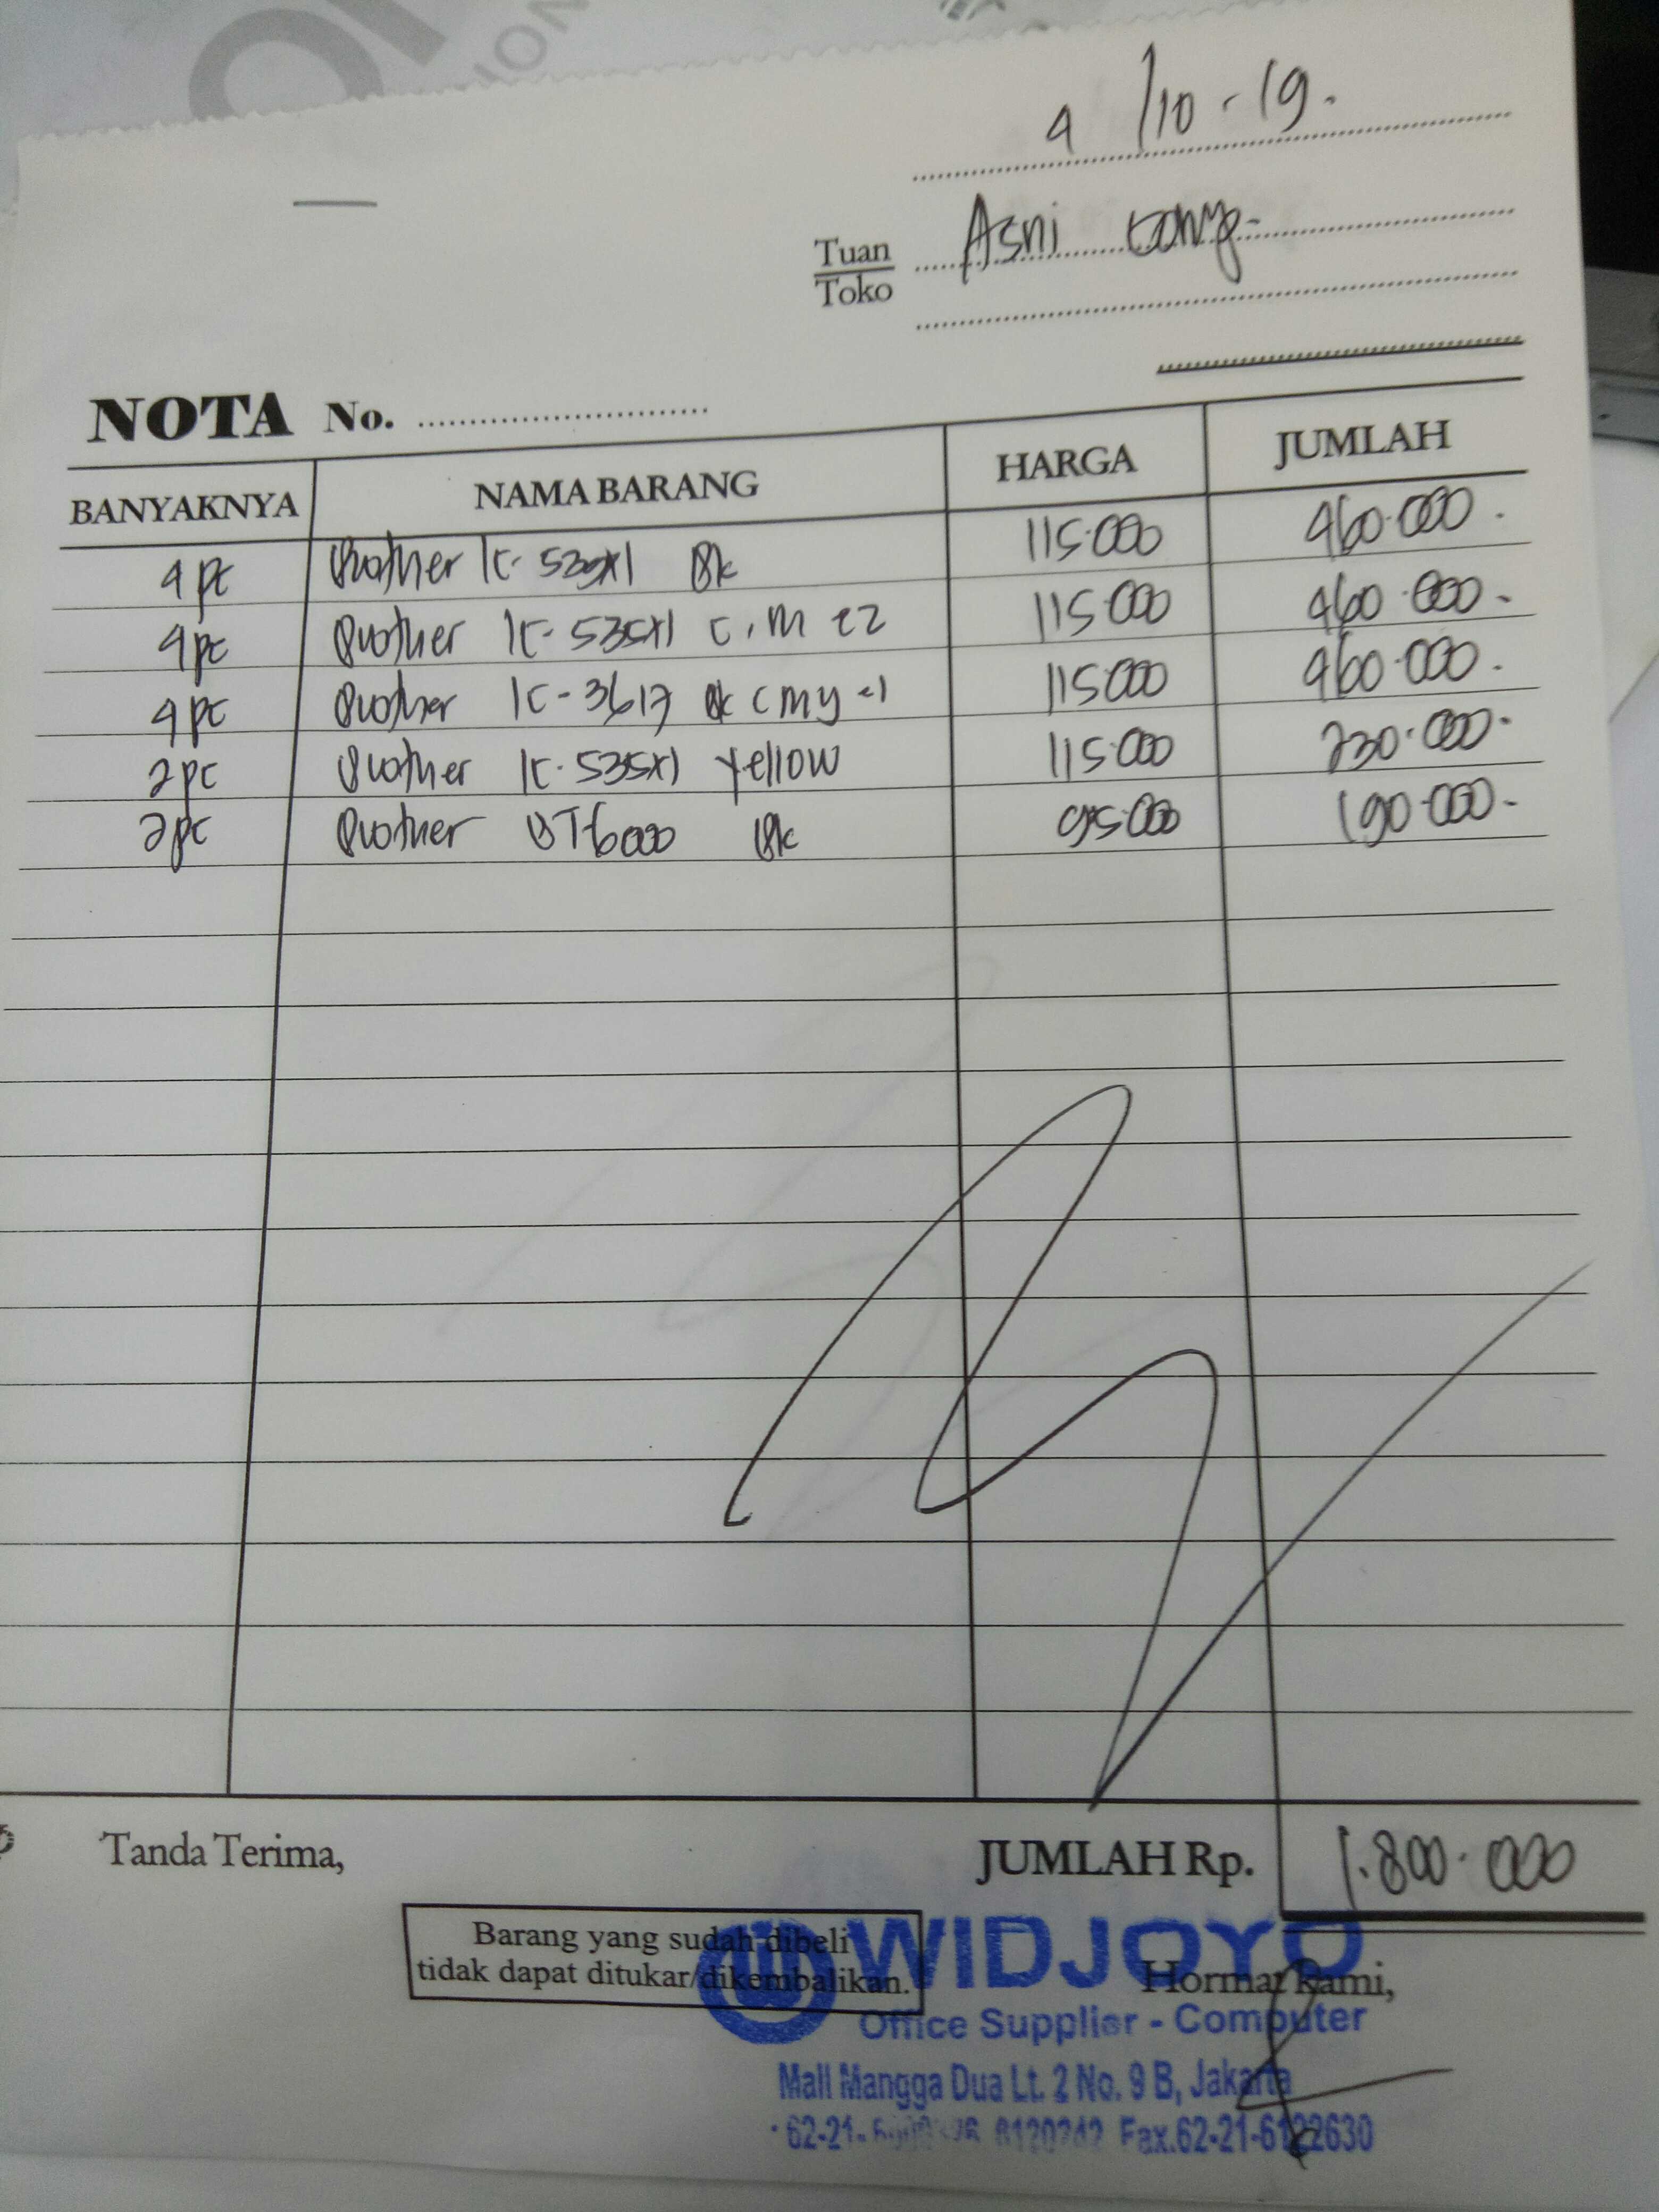 4/10-19.
Tuan Asni
Toko
NOTA No.
BANYAKNYA NAMA BARANG HARGA JUMLAH
4 pc Brother lc- 535xl Bk 115.000 460.000.
4 pc Brother lc- 535xl C, M @2 115.000 460.000.
4 pc Brother lc- 3617 Bk C M Y @1 115.000 460.000.
2 pc Brother lc- 535xl Yellow 115.000 230.000.
2 pc Brother BT6000 Bk 95.000 190.000.
Tanda Terima, JUMLAH Rp. 1.800.000
Barang yang sudah dibeli
tidak dapat ditukar/dikembalikan.
WIDJOYO
Hormat kami,
Office Supplier - Computer
Mall Mangga Dua Lt. 2 No. 9 B, Jakarta
62-21- Fax.62-21-6122630